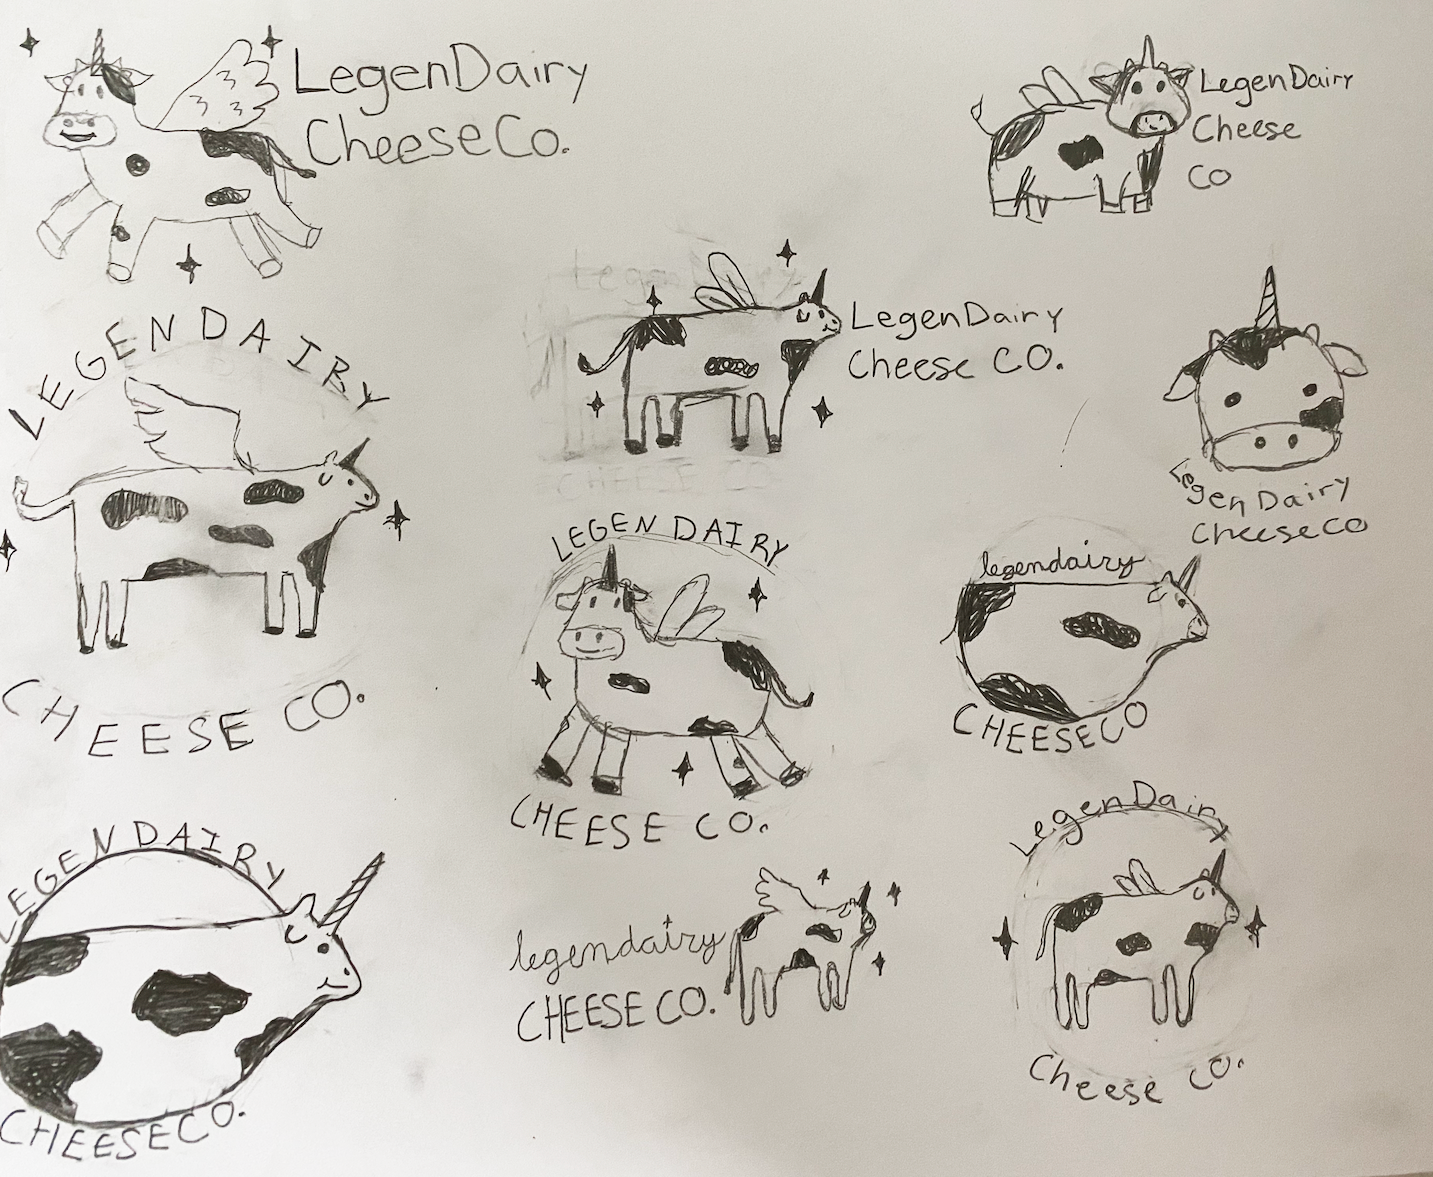 LegenDairy
Cheese Co.
LegenDairy
Cheese
CO
LegenDairy
Cheese CO.
LEGENDAIRY
CHEESE CO.
LegenDairy
CheeseCO
LEGENDAIRY
CHEESE CO.
legendairy
CHEESECO
LEGENDAIRY
CHEESECO.
legendairy
CHEESE CO.
LegenDairy
Cheese CO.
CHEESE CO